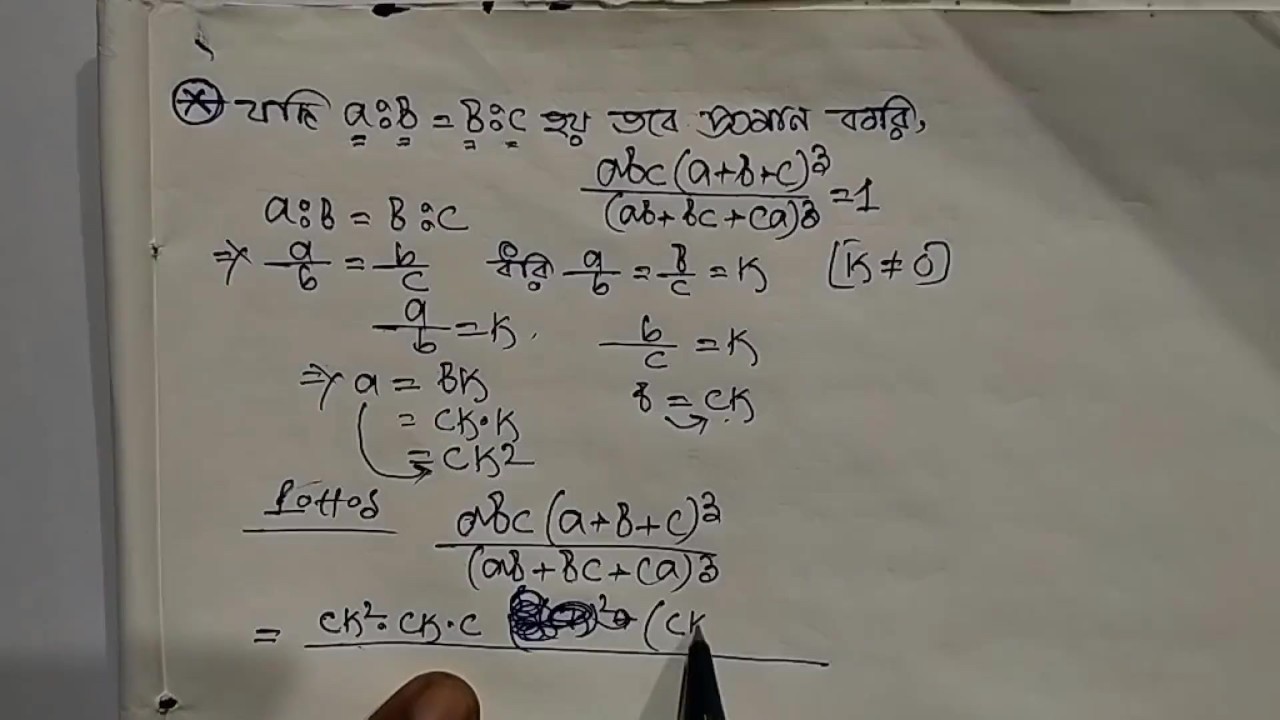 যদি a:b = b:c হয় তবে প্রমান করি,
abc(a+b+c)³
(ab+bc+ca)3 =1
a:b = b:c
⇒ a/b = b/c ধরি a/b = b/c = K [K ≠ 0]
a/b = K, b/c = K
⇒ a = bK b = cK
= cK·K
= cK2
abc(a+b+c)³
(ab+bc+ca)3
= cK²·cK·c (cK